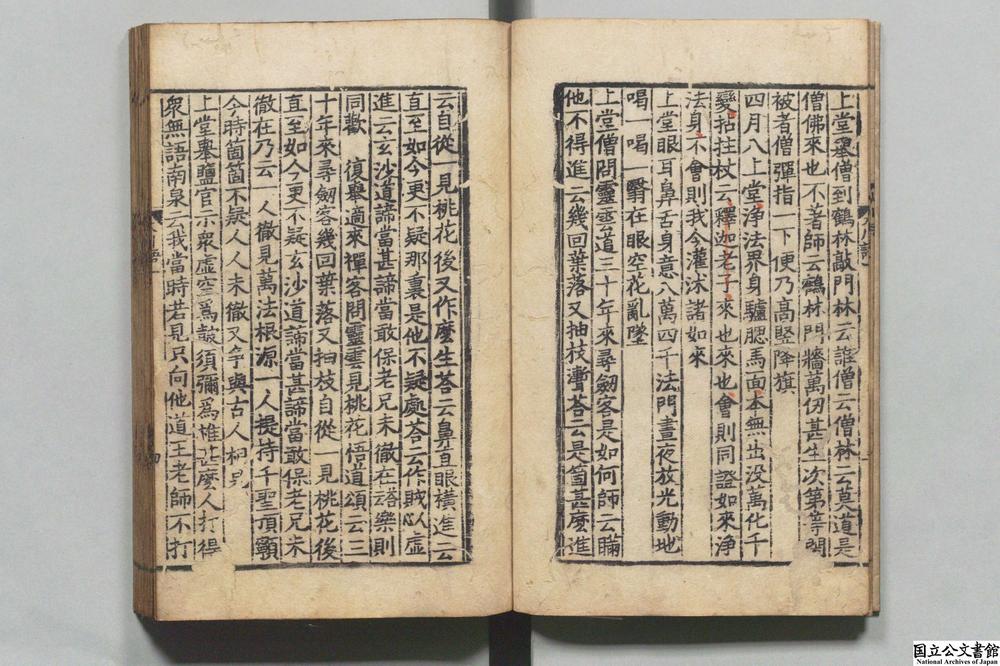 上堂舉僧到鶴林敲門林云誰僧云僧林云莫道是
僧佛來也不著師云鶴林門牆萬仞甚生次第等閑
被者僧彈指一下便乃高竪降旗
四月八上堂淨法界身本無出没驢腮馬面萬化千
變拈拄杖云釋迦老子來也來也會則同證如來淨
法身不會則我今灌沐諸如來
上堂眼耳鼻舌身意八萬四千法門晝夜放光動地
喝一喝一翳在眼空花亂墜
上堂僧問靈雲道三十年來尋劒客是如何師云瞞
他不得進云幾回葉落又抽枝聻荅云是箇甚麽進
云自從一見桃花後又作麽生荅云鼻直眼橫進云
直至如今更不疑那裏是他不疑處荅云作賊人心虛
進云玄沙道諦當甚諦當敢保老兄未徹在聻樂則
同歡　復舉適來禪客問靈雲見桃花悟道頌云三
十年來尋劒客幾回葉落又抽枝自從一見桃花後
直至如今更不疑玄沙道諦當甚諦當敢保老兄未
徹在乃云一人徹見萬法根源一人提持千聖頂顙
今時箇箇不疑人人未徹又爭與古人相見
上堂舉鹽官示衆虛空爲鼓須彌爲椎甚麽人打得
衆無語南泉云我當時若見只向他道王老師不打
国立公文書館
National Archives of Japan